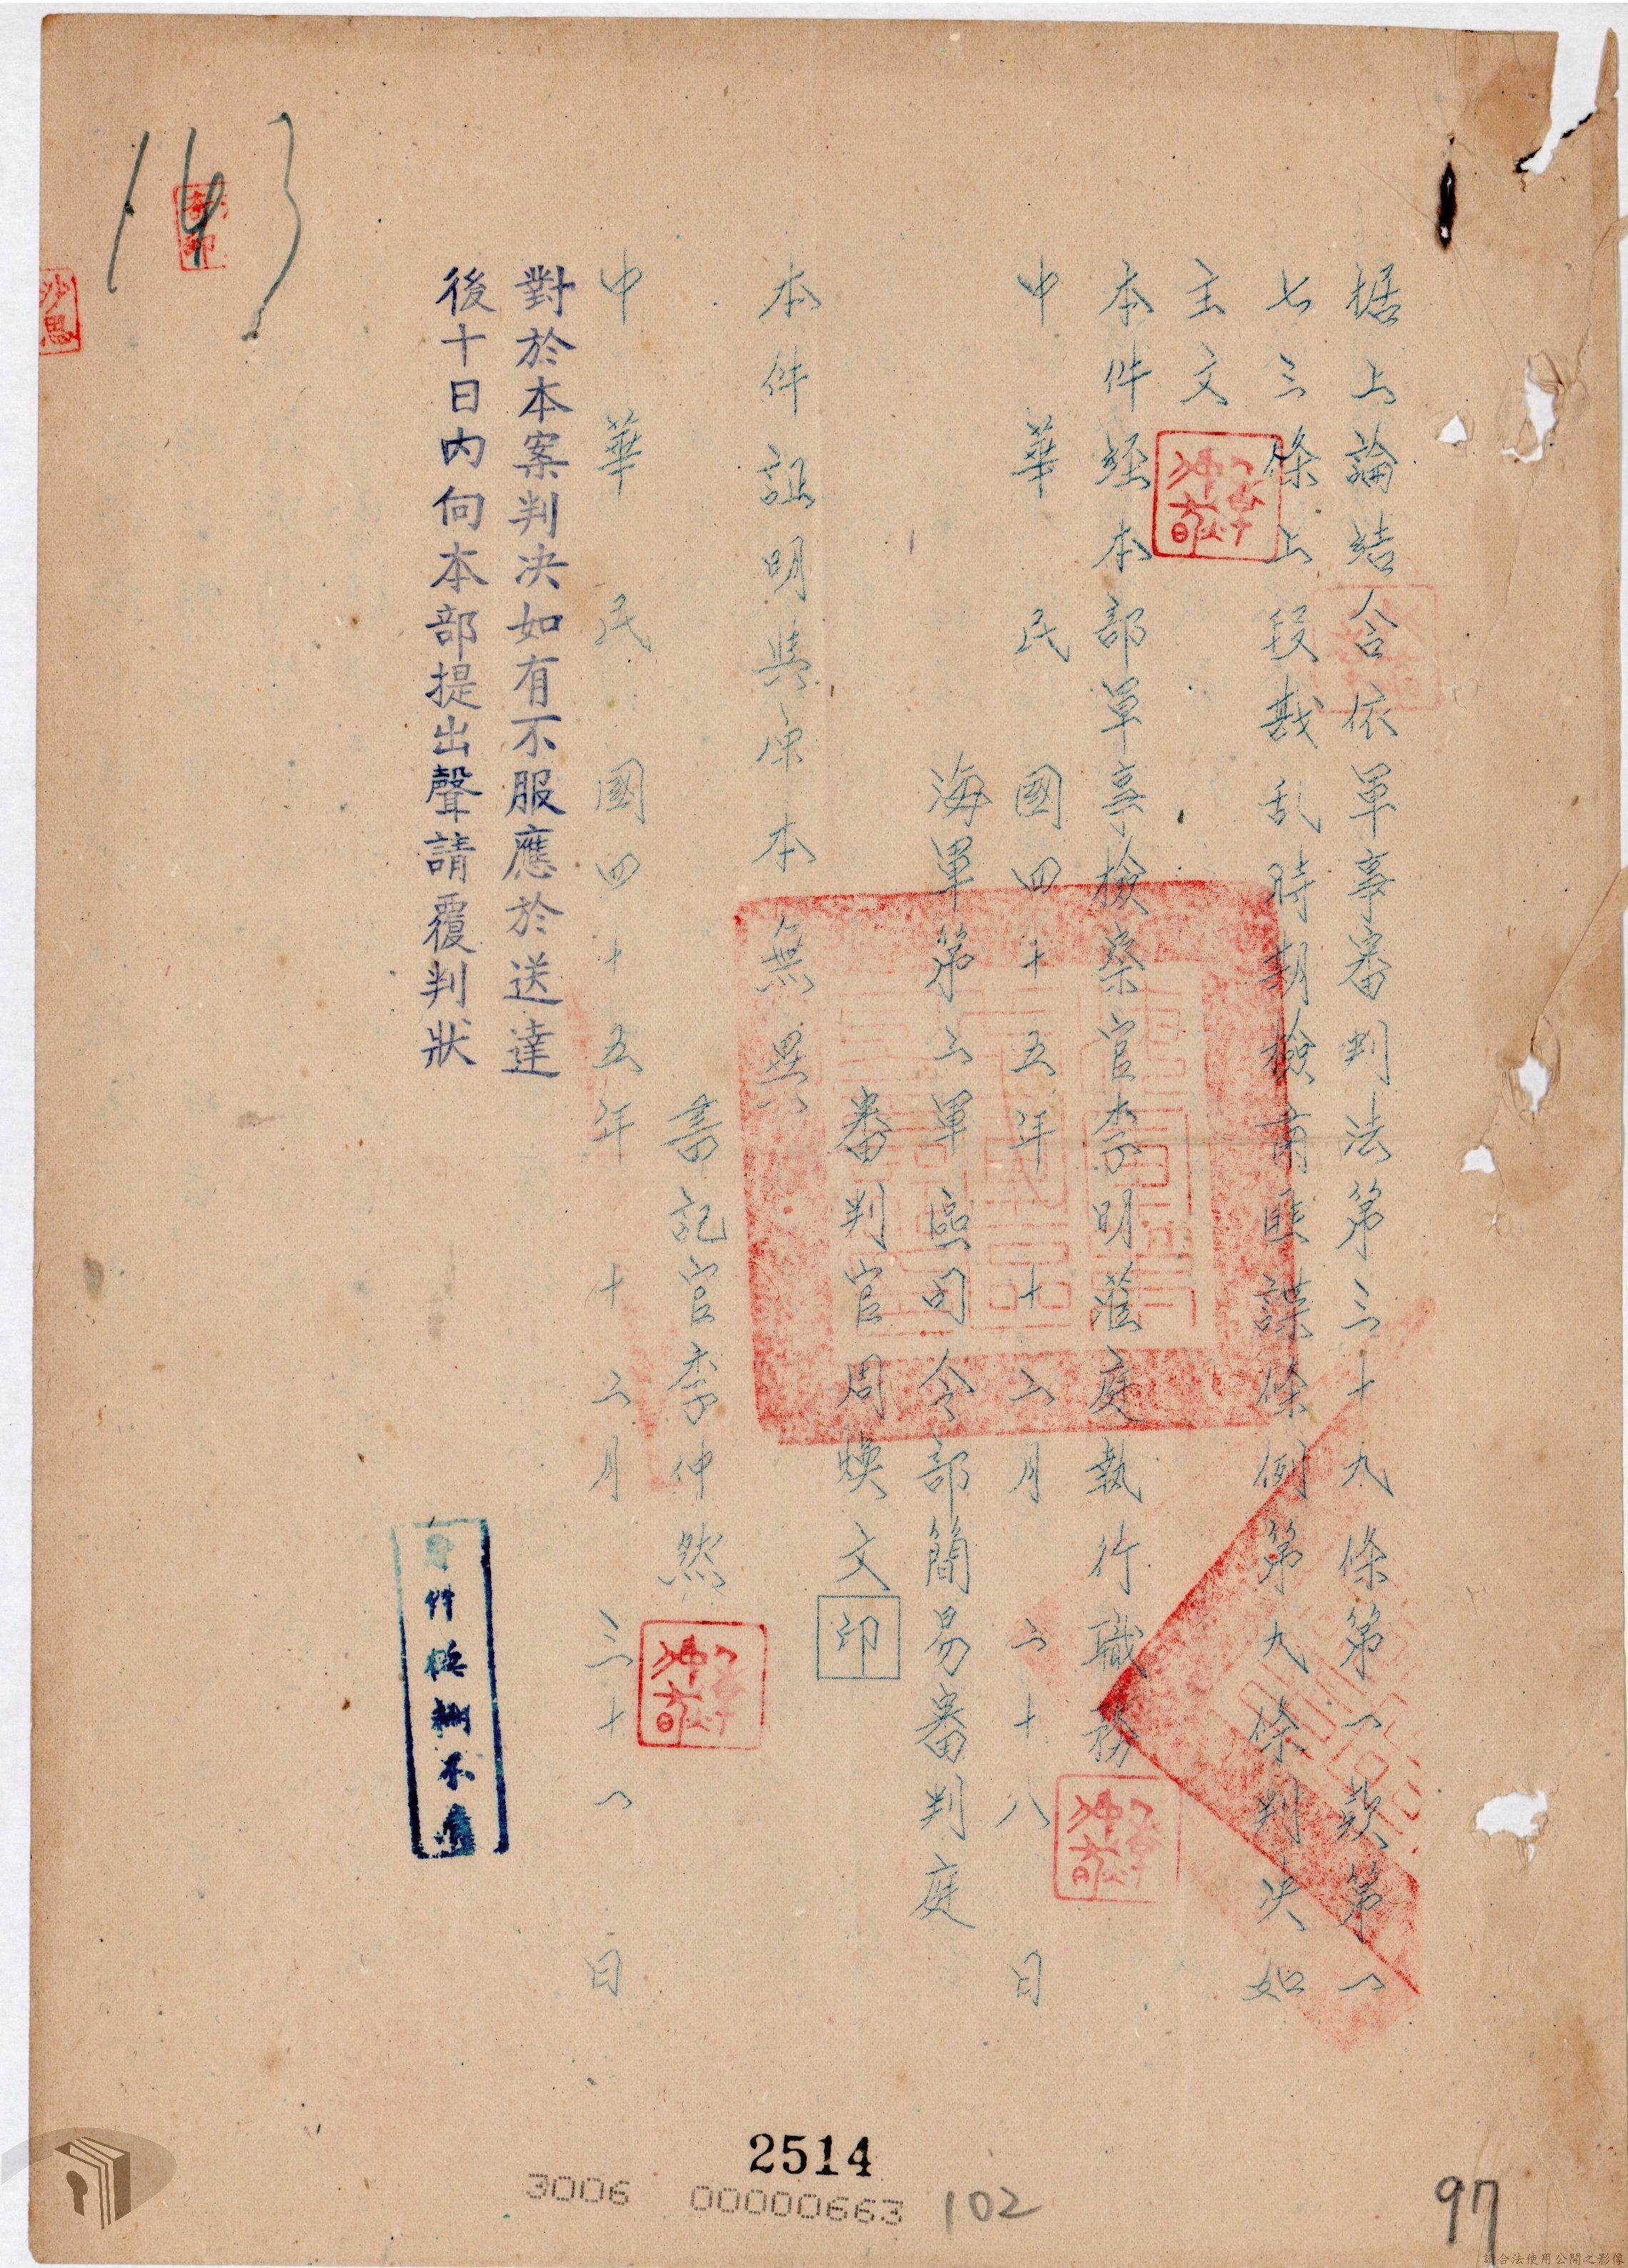 据上論結合依軍事審判法第三十九條第一款第一
七三條上段戡乱時期檢肅匪諜條例第九條判決如
主文
本件經本部軍事檢察官李明蒞庭執行職務
中華民國四十五年十二月二十八日
海軍第二軍區司令部簡易審判庭
審判官周煥文印
本件証明與原本無異
書記官李仲然
中華民國四十五年十二月三十一日
對於本案判决如有不服應於送達
後十日內向本部提出聲請覆判狀
143
2514
3006 00000663 102
97
請合法使用公開之影像